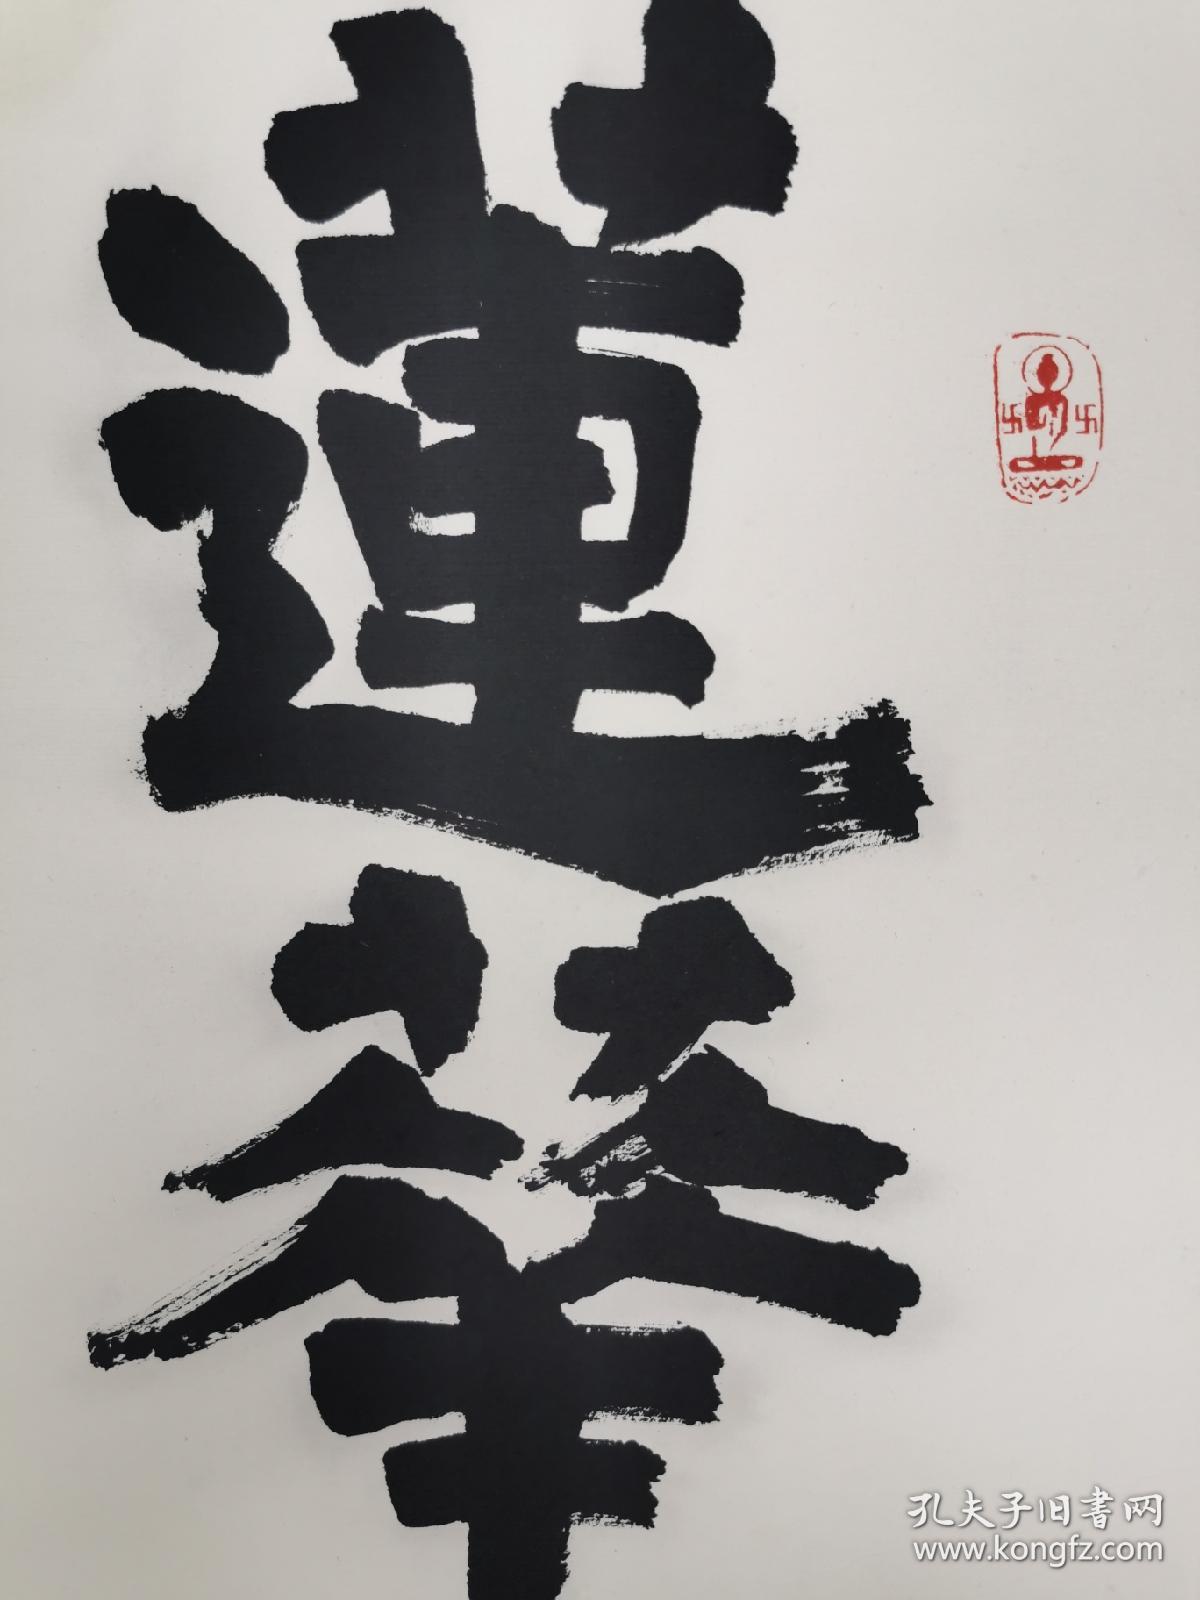 蓮
華
卐 卐
孔夫子旧書网
www.kongfz.com